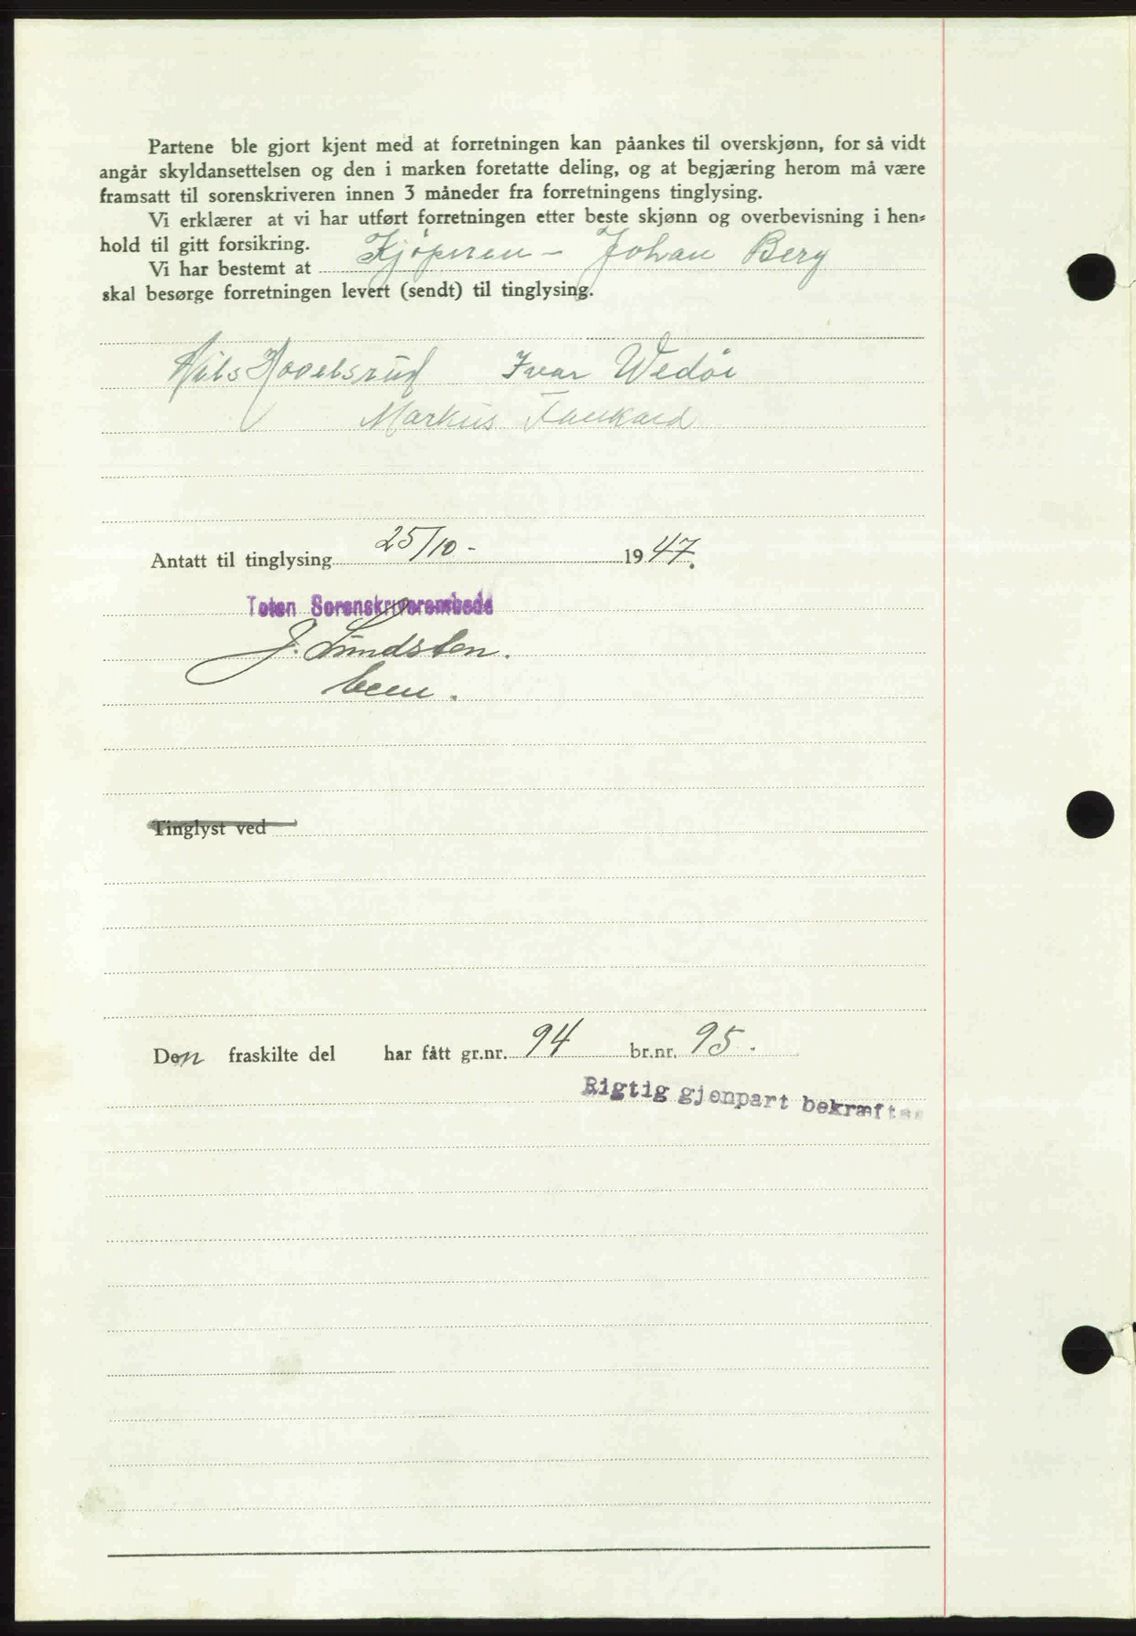 Partene ble gjort kjent med at forretningen kan påankes til overskjønn, for så vidt
angår skyldansettelsen og den i marken foretatte deling, og at begjæring herom må være
framsatt til sorenskriveren innen 3 måneder fra forretningens tinglysing.
Vi erklærer at vi har utført forretningen etter beste skjønn og overbevisning i hen-
hold til gitt forsikring.
Vi har bestemt at Kjøperen – Johan Berg
skal besørge forretningen levert (sendt) til tinglysing.
Nils Hovelsrud Ivar Wedøe
Markus
Antatt til tinglysing 25/10 - 1947.
Toten Sorenskriverembede
J. Sundsten.
Tinglyst ved
Den fraskilte del har fått gr.nr. 94 br.nr. 95.
Rigtig gjenpart bekræftes